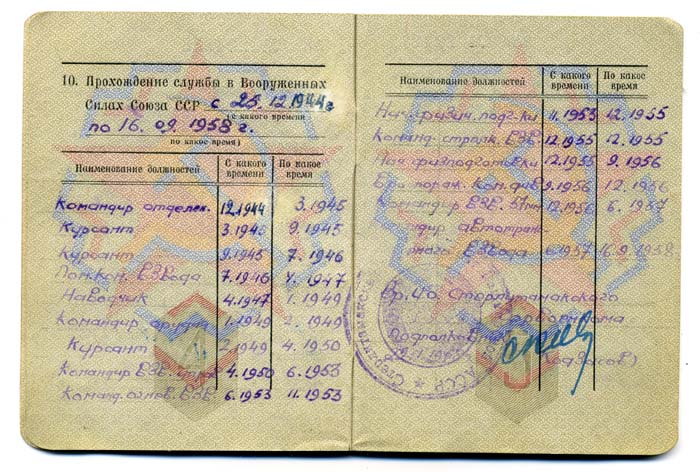 10. Прохождение службы в Вооруженных
Силах Союза ССР с 25.12.1944 г
(с какого времени
по 16.09.1958 г.
по какое время)
Наименование должностей С какого времени По какое время
Командир отделен. 12.1944 3.1945
Курсант 3.1945 9.1945
Курсант 9.1945 7.1946
Пом. ком. ВЗвода 7.1946 4.1947
Наводчик 4.1947 1.1949
Командир орудия 1.1949 2.1949
Курсант 2.1949 4.1950
Командир ВЗВ. 4.1950 6.1953
Команд. огнев. ВЗВ. 6.1953 11.1953
Наименование должностей С какого времени По какое время
Нач. физич. подг-ки 11.1953 12.1955
Команд. стрелк. ВЗВ. 12.1955 12.1955
Нач. физподготовки 12.1955 9.1956
9.1956 12.1956
Командир ВЗВ. 57мм 12.1956 6.1957
автотранс
ного ВЗвода 6.1957 16.9.1958
Стерлитамакского
Горвоенкома
Подполковник